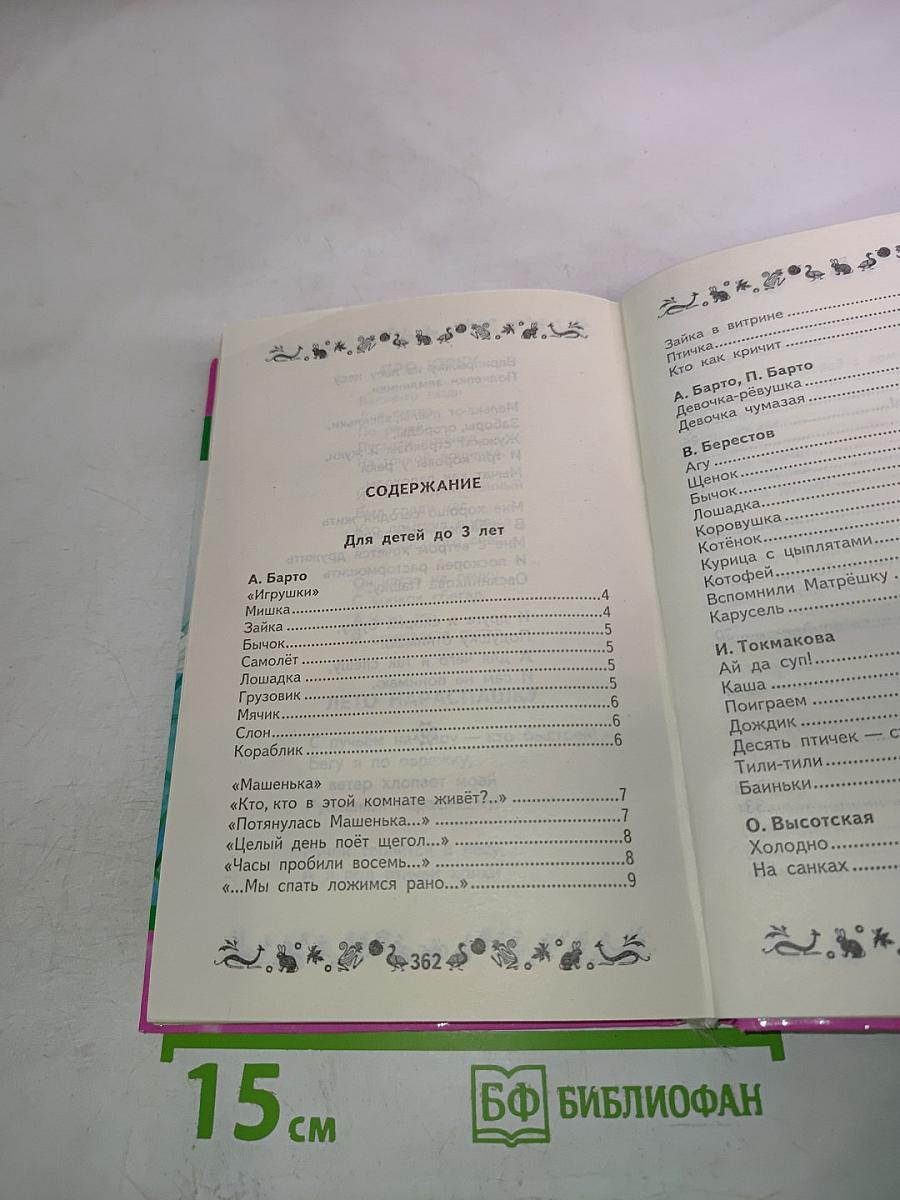 СОДЕРЖАНИЕ
Для детей до 3 лет
А. Барто
«Игрушки»
Мишка....4
Зайка....4
Бычок....5
Самолёт....5
Лошадка....5
Грузовик....5
Мячик....6
Слон....6
Кораблик....6
«Машенька»
«Кто, кто в этой комнате живёт?..»....7
«Потянулась Машенька...»....7
«Целый день поёт щегол...»....8
«Часы пробили восемь...»....8
«...Мы спать ложимся рано...»....9
362
Зайка в витрине
Птичка
Кто как кричит
А. Барто, П. Барто
Девочка-рёвушка
Девочка чумазая
В. Берестов
Агу
Щенок
Бычок
Лошадка
Коровушка
Котёнок
Курица с цыплятами
Котофей
Вспомнили Матрёшку
Карусель
И. Токмакова
Ай да суп!
Каша
Поиграем
Дождик
Десять птичек —
Тили-тили
Баиньки
О. Высотская
Холодно
На санках
15 см
БФ БИБЛИОФАН